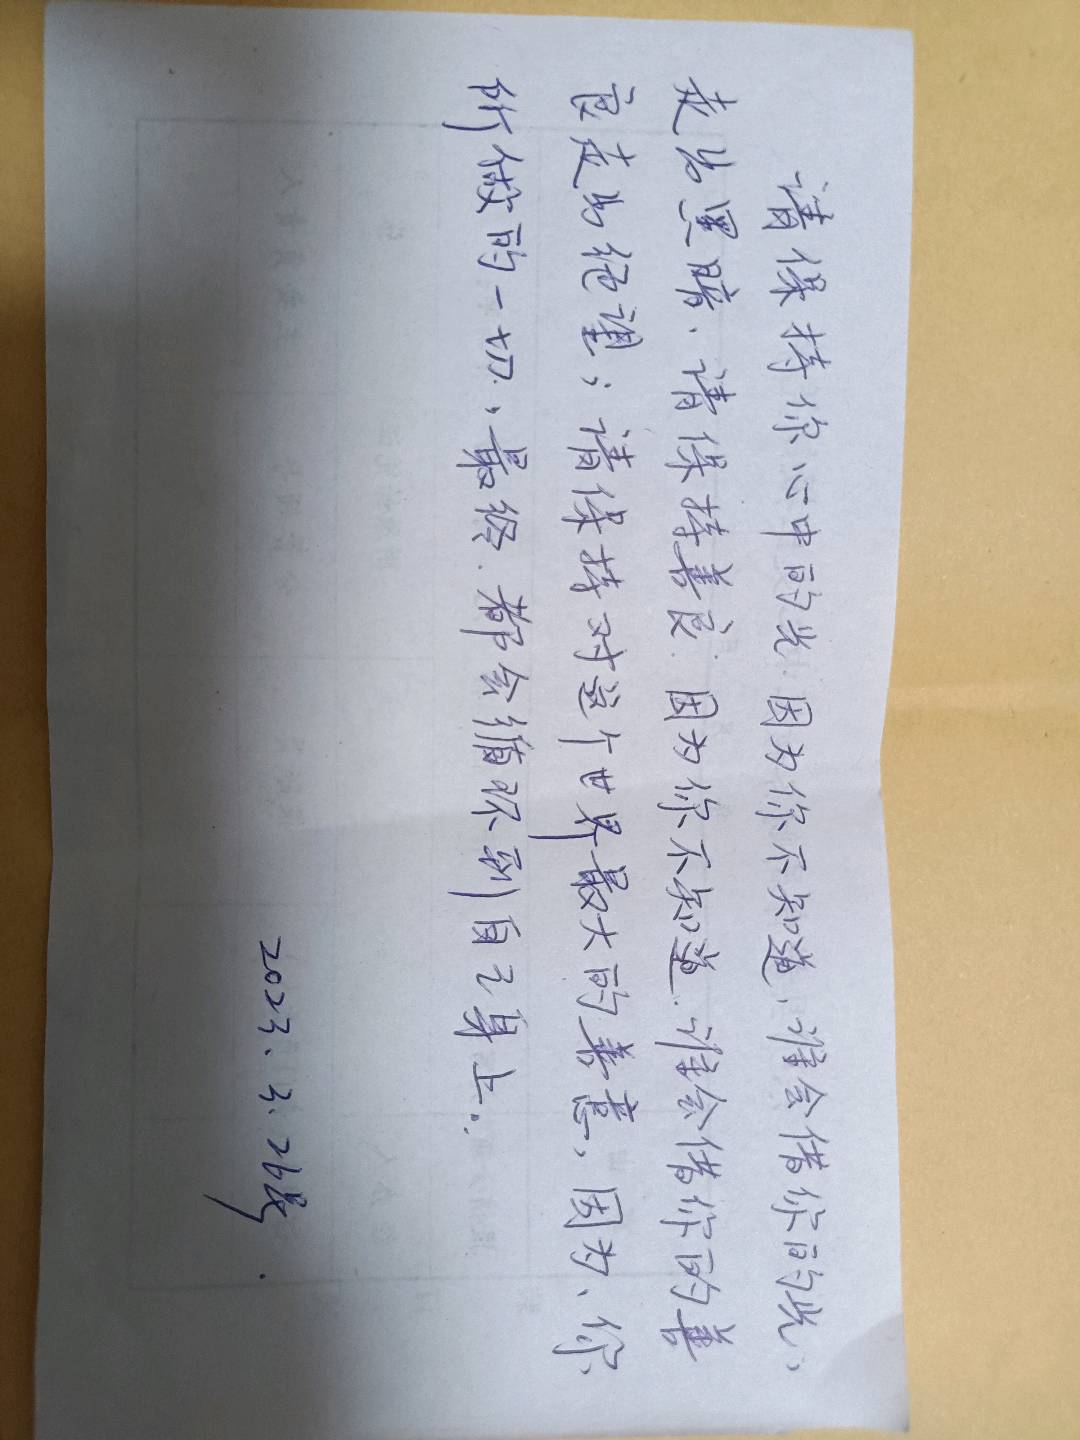 请保持你心中的光.因为你不知道,谁会借你的光,
走出黑暗.请保持善良.因为你不知道.谁会借你的善
良走出绝望;请保持对这个世界最大的善意,因为、你
所做的一切.,最终.都会循环到自己身上..
2023.3.26号.